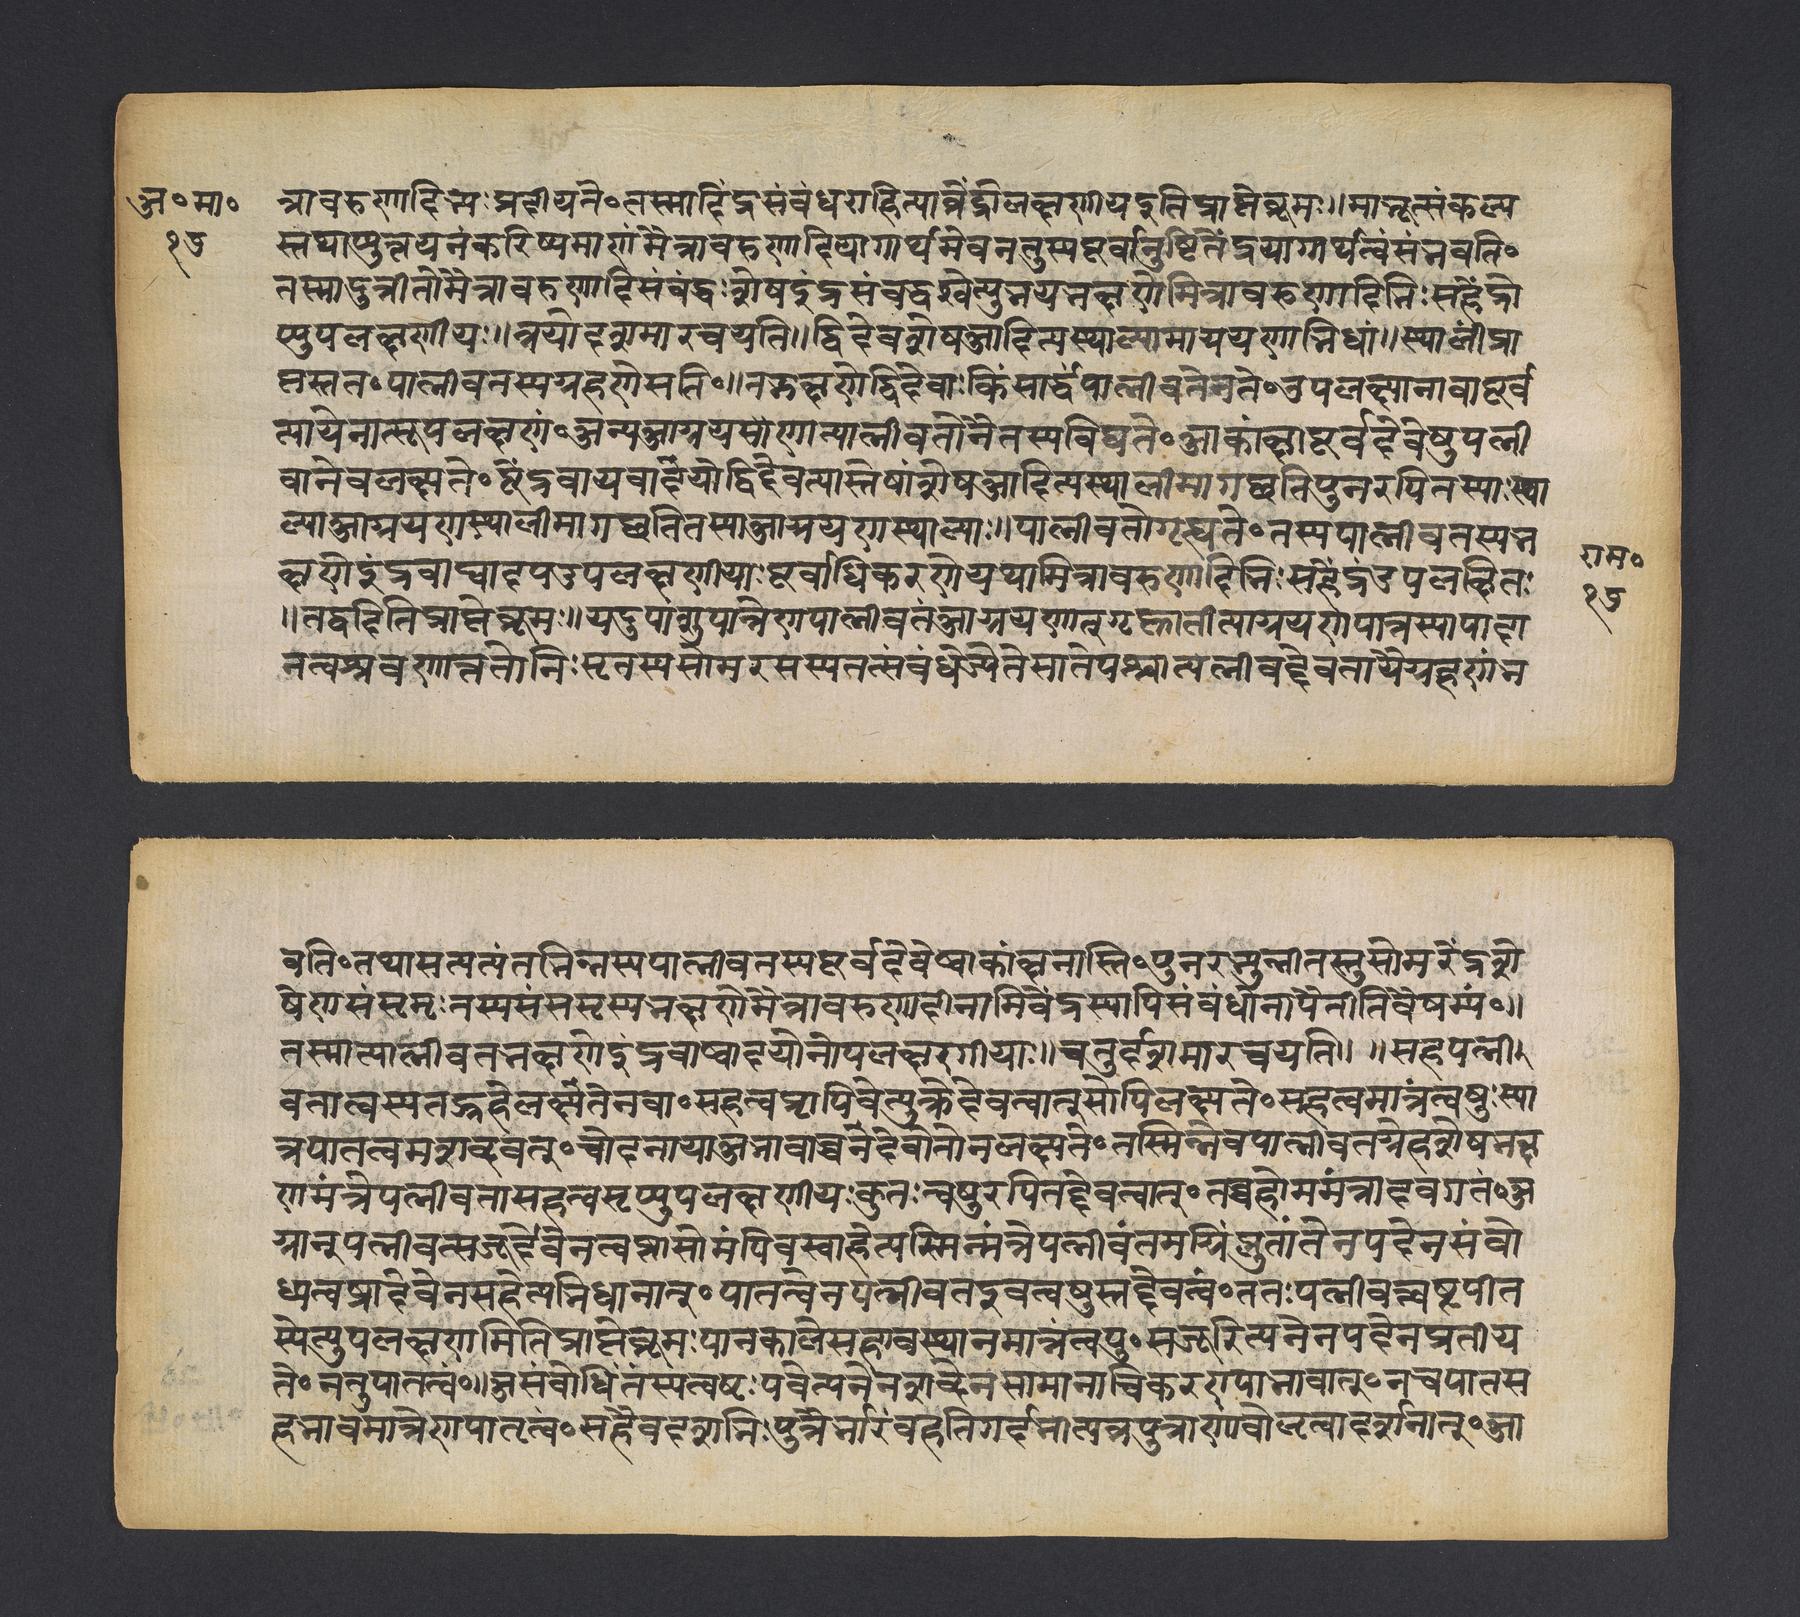 अ॰मा॰
१७
त्रावरुणादिभ्यः प्रदीयते॰तस्मादिंद्रसंबंधराहित्यान्नेंद्रोलक्षणीयइतिप्राप्तेब्रूमः॥माभूत्संकल्प
स्तथाप्युन्नयनंकरिष्यमाणंमैत्रावरुणादियागार्थमेवनतुस्यपूर्वानुष्ठितेंद्रयागार्थत्वंसंभवति॰
तस्मादुन्नीतोमैत्रावरुणादिसंबंद्धःशेषइंद्रसंबद्धश्चेत्युभयभक्षणेमित्रावरुणादिभिःसहेंद्रो
प्युपलक्षणीयः॥त्रयोदशमारचयति॥द्विदेवशेषआदित्यस्थाल्यामाग्रयणाभिधां॥स्थालींप्रा
प्तस्ततः॰पात्नीवतस्यग्रहणेसति॰॥तद्भक्षणेद्विदेवाःकिंसार्द्धंपात्नीवतेनते॰उपलक्ष्यानावापूर्व
न्यायेनास्तूपलक्षणं॰अन्यआग्रयणात्पात्नीवतोनैतस्यविद्यते॰आकांक्षापूर्वदेवेषुपत्नी
वानेवलक्ष्यते॰ऐंद्रवायवादयोद्विदैवत्यास्तेषांशेषआदित्यस्थालीमागच्छतिपुनरपितस्याःस्था
ल्याआग्रयणस्थालीमागच्छतितस्याआग्रयणस्थाल्याः॥पात्नीवतोगृह्यते॰तस्यपात्नीवतस्यभ
क्षणेइंद्रवाय्वादयउपलक्षणीयाःपूर्वाधिकरणेयथामित्रावरुणादिभिःसहेंद्रउपलक्षितः
राम॰
१७
॥तद्वदितिप्राप्तेब्रूमः॥यदुपांशुपात्रेणपात्नीवतंआग्रयणात्गृह्णातीत्याग्रयणपात्रस्यापादा
नत्वश्रवणात्ततोनिःसृतस्यसोमरसस्यतत्संबंधेऽपेतेसतिपश्चात्पत्नीवद्देवतायैग्रहणंभ
वति॰तथासत्यत्यंतभिन्नस्यपात्नीवतस्यपूर्वदेवेष्वाकांक्षानास्ति॰पुनरभ्युन्नीतस्तुसोमऐंद्रशे
षेणसंसृष्टःतस्यसंसृष्टस्यभक्षणेमैत्रावरुणादीनामिवेंद्रस्यापिसंबंधोनापैतीतिवैषम्यं॰॥
तस्मात्पात्नीवतभक्षणेइंद्रवाय्वादयोनोपलक्षणीयाः॥चतुर्दशमारचयति॥ ॥सहपत्नी
वतात्वष्टातद्ग्रहेलक्ष्यतेनवा॰सहत्वष्ट्रापिबेत्युक्तेर्देवत्वात्सोपिलक्ष्यते॰सहत्वमात्रंत्वष्टुःस्या
न्नपातृत्वमशब्दवत्॰चोदनायाअभावाच्चनदेवोतोनलक्ष्यते॰तस्मिन्नेवपात्नीवतग्रहशेषभक्ष
णमंत्रेपत्नीवतासहत्वष्टाप्युपलक्षणीयःकुतःत्वष्टुरपितद्देवत्वात्॰तच्चहोममंत्रादवगतं॰अ
ग्नात्पत्नीवत्सजूर्देवेनत्वष्ट्रासोमंपिबस्वाहेत्यस्मिन्मंत्रेपत्नीवंतमग्निंप्लुतांतेनपदेनसंबो
ध्यत्वष्ट्रादेवेनसहेत्यभिधानात्॰पातृत्वेनपत्नीवतइवत्वष्टुस्तद्देवत्वं॰ततःपत्नीवत्त्वष्टृपीत
स्येत्युपलक्षणमितिप्राप्तेब्रूमःपानकालेसहावस्थानमात्रंत्वष्टुः॰सजूरित्यनेनपदेनप्रतीय
ते॰नतुपातृत्वं॰॥असंबोधितस्यत्वष्टुःपिबेत्यनेनशब्देनसामानाधिकरण्याभावात्॰नचपातृस
हभावमात्रेणपातृत्वं॰सहैवदशभिःपुत्रैर्भारंवहतिगर्दभीत्यत्रपुत्राणांवोढृत्वादर्शनात्॰आ